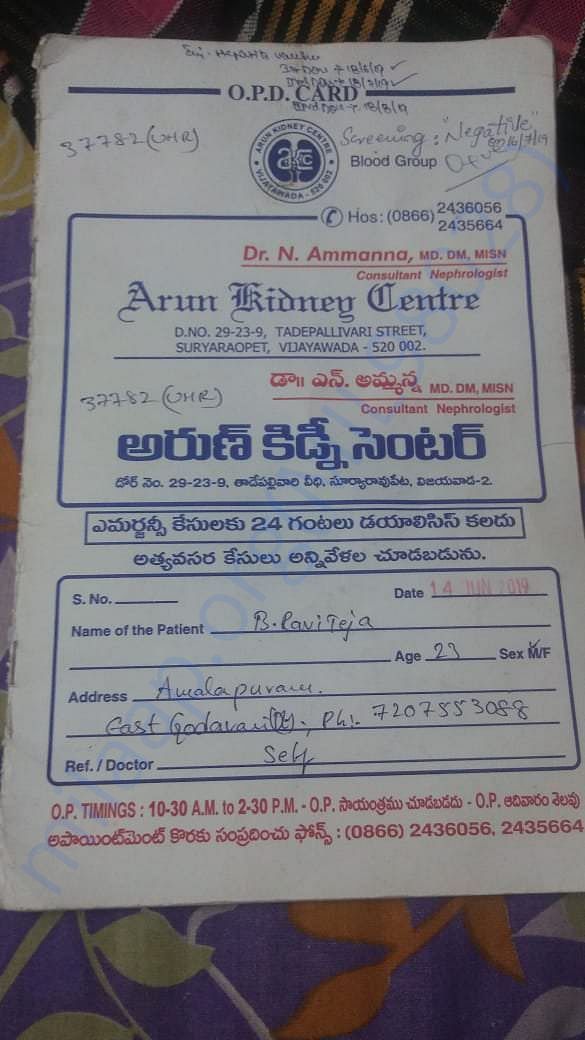 Inj. Hepatitis Vaccine
18/6/19 ✓
18/7/19 ✓
18/8/19
O.P.D. CARD
37782 (UHR)
ARUN KIDNEY CENTRE
VIJAYAWADA - 520 002
Screening: "Negative"
16/7/19
Blood Group
✆ Hos: (0866) 2436056
2435664
Dr. N. Ammanna, MD. DM, MISN
Consultant Nephrologist
Arun Kidney Centre
D.NO. 29-23-9, TADEPALLIVARI STREET,
SURYARAOPET, VIJAYAWADA - 520 002.
37782 (UHR)
డా॥ ఎన్. అమ్మన్న MD. DM, MISN
Consultant Nephrologist
అరుణ్ కిడ్నీ సెంటర్
డోర్ నెం. 29-23-9, తాడేపల్లివారి వీధి, సూర్యారావుపేట, విజయవాడ-2.
ఎమర్జన్సీ కేసులకు 24 గంటలు డయాలిసిస్ కలదు
అత్యవసర కేసులు అన్నివేళల చూడబడును.
S. No.
Date 14 JUN 2019
Name of the Patient B. RaviTeja
Age 23 Sex M/F
Address Amalapuram.
East Godavari (Dt), Ph:- 7207553088
Ref. / Doctor Self
O.P. TIMINGS : 10-30 A.M. to 2-30 P.M. - O.P. సాయంత్రము చూడబడదు - O.P. ఆదివారం శెలవు
అపాయింట్‌మెంట్ కొరకు సంప్రదించు ఫోన్స్ : (0866) 2436056, 2435664